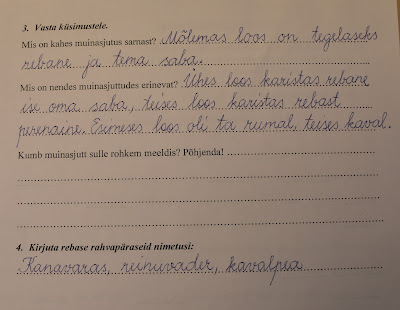 3. Vasta küsimustele.
Mis on kahes muinasjutus sarnast? Mõlemas loos on tegelaseks
rebane ja tema saba.
Mis on nendes muinasjuttudes erinevat? Ühes loos karistas rebane
ise oma saba, teises loos karistas rebast
perenaine. Esimeses loos oli ta rumal, teises kaval.
Kumb muinasjutt sulle rohkem meeldis? Põhjenda!
4. Kirjuta rebase rahvapäraseid nimetusi:
Kanavaras, reinuvader, kavalpea